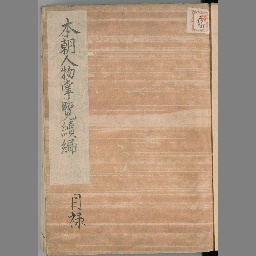 本朝人物掌覽續編
目禄